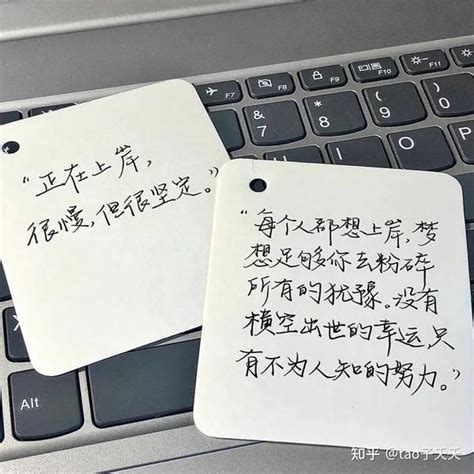 “正在上岸，
很慢，但很坚定。”
“每个人都想上岸，梦
想足够你去粉碎
所有的犹豫。没有
横空出世的幸运，只
有不为人知的努力。”
F7
F8
F9
F10
F11
&
7
*
8
(
9
)
0
U
I
O
P
Alt
知乎 @tao了天天